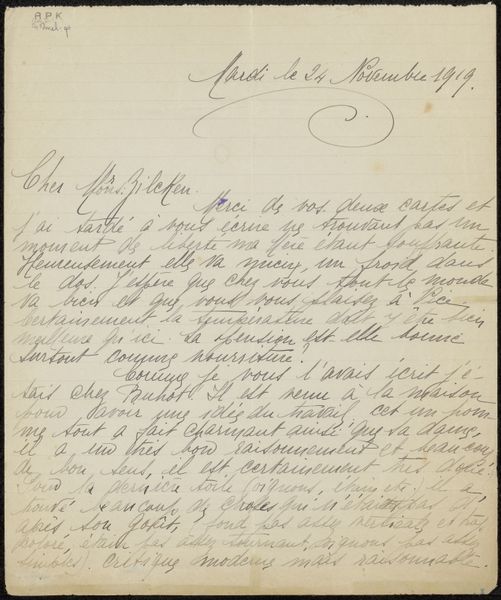 R.P.K
Mardi le 24 Novembre 1919.
Cher Mons. Zilcken.
Merci de vos deux cartes et
j'ai tardé à vous écrire ne trouvant pas un
moment de liberté ma étant souffrante
Heureusement elle va mieux, un froid dans
le dos. J'espère que chez vous tout le monde
va bien et que vous vous plaisez à Nice.
Certainement la température doit y être bien
meilleure qu'ici. La pension est elle bonne
surtout comme nourriture?
Comme je vous l'avais écrit j'é-
tais chez . Il est venu à la maison
pour avoir une idée du travail, c'est un hom
me tout a fait charmant ainsi que sa dame,
il a un très bon raisonnement et beaucoup
de bon sens, il est certainement très .
la dernière toile (oignons, étain, etc.) il a
trouvé beaucoup de choses qui n'étaient pas d'
après son goût, fond pas assez vertical et trop
coloré, étain pas assez tournant, oignons pas assez
simples). Critique moderne mais raisonnable.